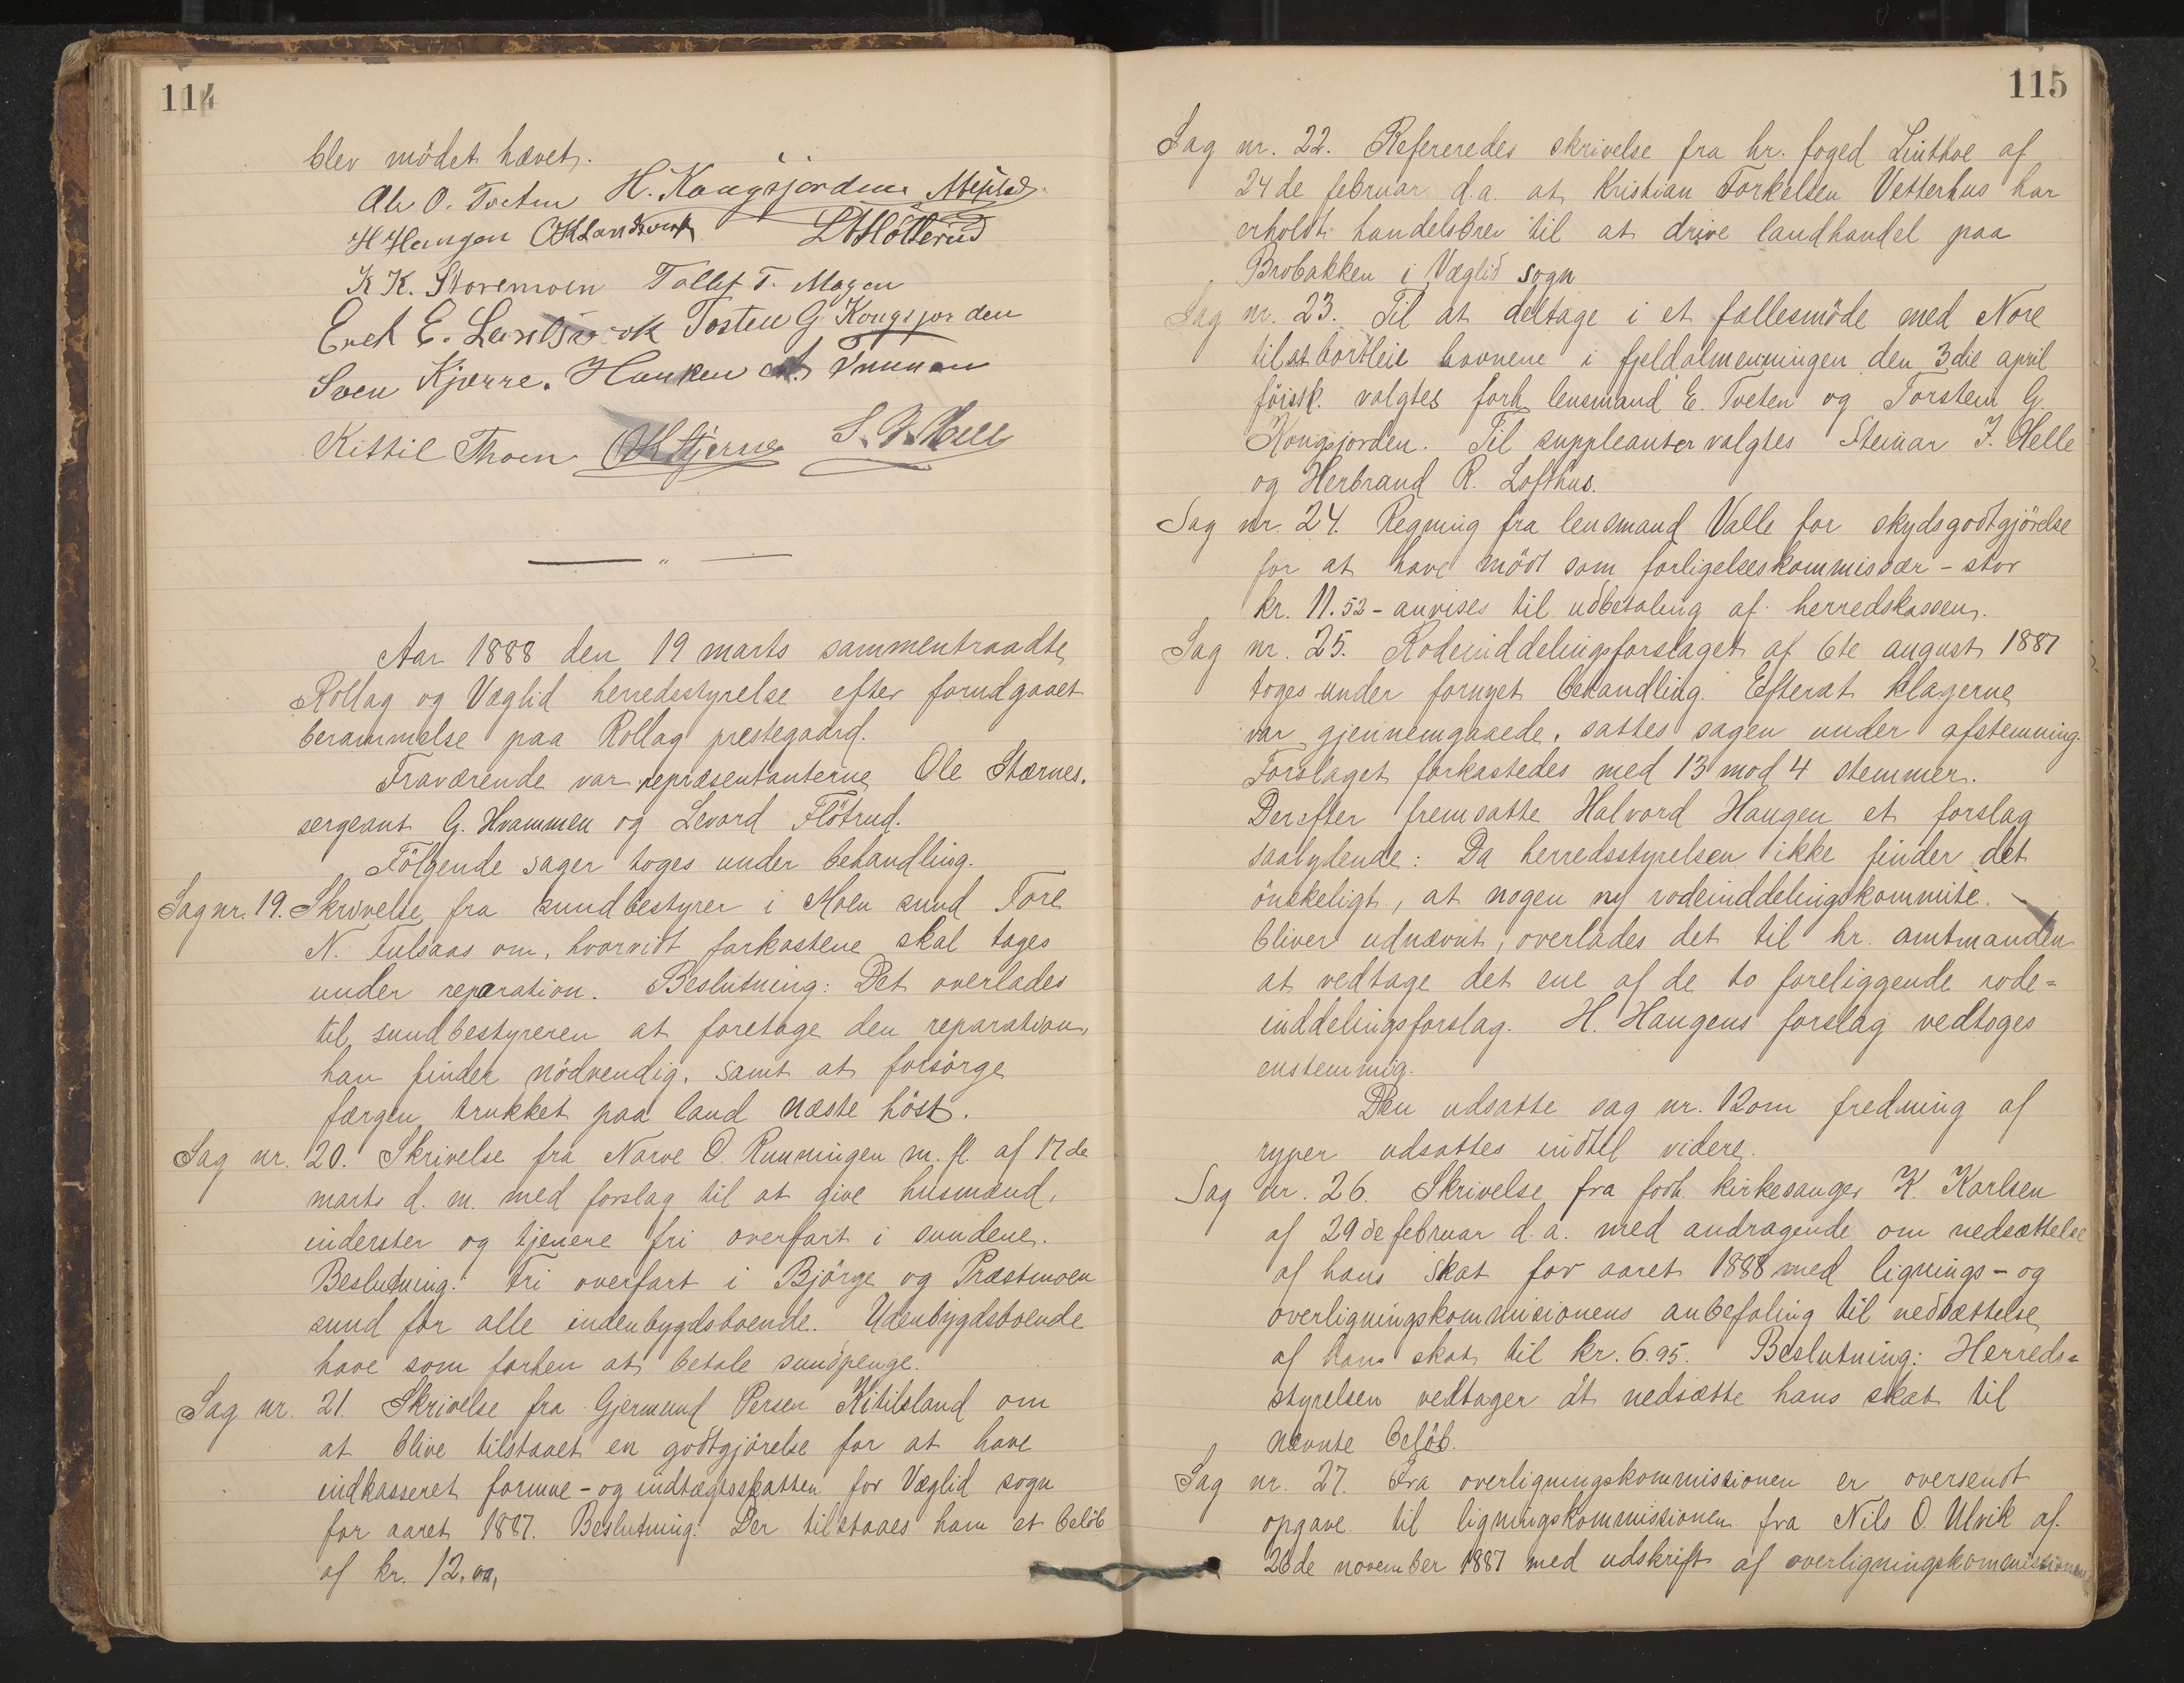 114
blev mödet hævet.
H. Kongsjorden
H Haugen
K K. Storemoen Tollef T. Mogen
Tosten G Kongsjorden
Sven Kjærre.
Kittil Thoen
Aar 1888 den 19 marts sammentraadte
Rollag og Væglid herredsstyrelse efter forudgaaet
berammelse paa Rollag prestegaard.
Fraværende var repræsentanterne Ole Stærnes,
sergeant G. Hvammen og Levord Flötrud.
Fölgende sager toges under behandling.
Sag nr. 19. Skrivelse fra sundbestyrer i Moen sund Tore
N. Fulsaas om, hvorvidt farkostene skal tages
under reparation. Beslutning: Det overlades
til sundbestyreren at foretage den reparation,
han finder nödvendig, samt at forsörge
færgen trukket paa land næste höst.
Sag nr. 20. Skrivelse fra Narve O. Runningen m. fl. af 17de
marts d. m. med forslag til at give husmænd,
inderster og tjenere fri overfart i sundene.
Beslutning: Fri overfart i Björge og Præstmoen
sund for alle indenbygdsboende. Udenbygdsboende
have som forhen at betale sundpenge.
Sag nr. 21. Skrivelse fra Gjermund Persen Kitilsland om
at blive tilstaaet en godtgjörelse for at have
indkasseret formue- og indtægtsskatten for Væglid sogn
for aaret 1887. Beslutning: Der tilstaaes ham et belöb
af kr. 12,00,
115
Sag nr. 22. Refereredes skrivelse fra hr. foged Linthoe af
24de februar d.a. at Kristian Torkelsen Vetterhus har
erholdt handelsbrev til at drive landhandel paa
Brobakken i Væglid sogn
Sag nr. 23. Til at deltage i et fællesmöde med Nore
til at bortleie havnene i fjeldalmenningen den 3die april
förstk. valgtes forh. lensmand E. Tveten og Torstein G.
Kongsjorden. Til suppleanter valgtes Steinar J. Helle
og Herbrand R. Lofthus.
Sag nr. 24. Regning fra lensmand Valle for skydsgodtgjörelse
for at have mödt som forligelseskommissær - stor
kr. 11.52 - anvises til udbetaling af herredskassen.
Sag nr. 25. Rodeinddelingsforslaget af 6te august 1887
toges under fornyet behandling. Efterat klagerne
var gjennemgaaede, sattes sagen under afstemning.
Forslaget forkastedes med 13 mod 4 stemmer.
Derefter fremsatte Halvord Haugen et forslag
saalydende: Da herredsstyrelsen ikke finder det
önskeligt, at nogen ny rodeinddelingskommite
bliver udnævnt, overlades det til hr. amtmanden
at vedtage det ene af de to foreliggende rode=
inddelingsforslag. H. Haugens forslag vedtoges
enstemmig.
Den udsatte sag nr. 12 om fredning af
ryper udsattes indtil videre.
Sag nr. 26. Skrivelse fra forh. kirkesanger K. Karlsen
af 29de februar d.a. med andragende om nedsættelse
af hans skat for aaret 1888 med lignings- og
overligningskommisionens anbefaling til nedsættelse
af hans skat til kr. 6.95. Beslutning: Herreds=
styrelsen vedtager at nedsætte hans skat til
nævnte belöb.
Sag nr. 27. Fra overligningskommissionen er oversendt
opgave til ligningskommissionen fra Nils O. Ulvik af
26de november 1887 med udskrift af overligningskommissionens